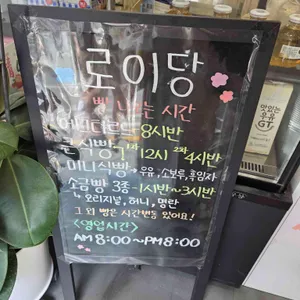 로이당
빵 나오는 시간
8시반
식빵 1차 12시 2차 4시반
미니식빵 → 우유, 소보루, 흑임자
소금빵 3종 - 1시반~3시반
오리지널, 허니, 명란
그 외 빵은 시간변동 있어요!
<영업시간>
AM 8:00~PM 8:00
맛있는
우유
GT